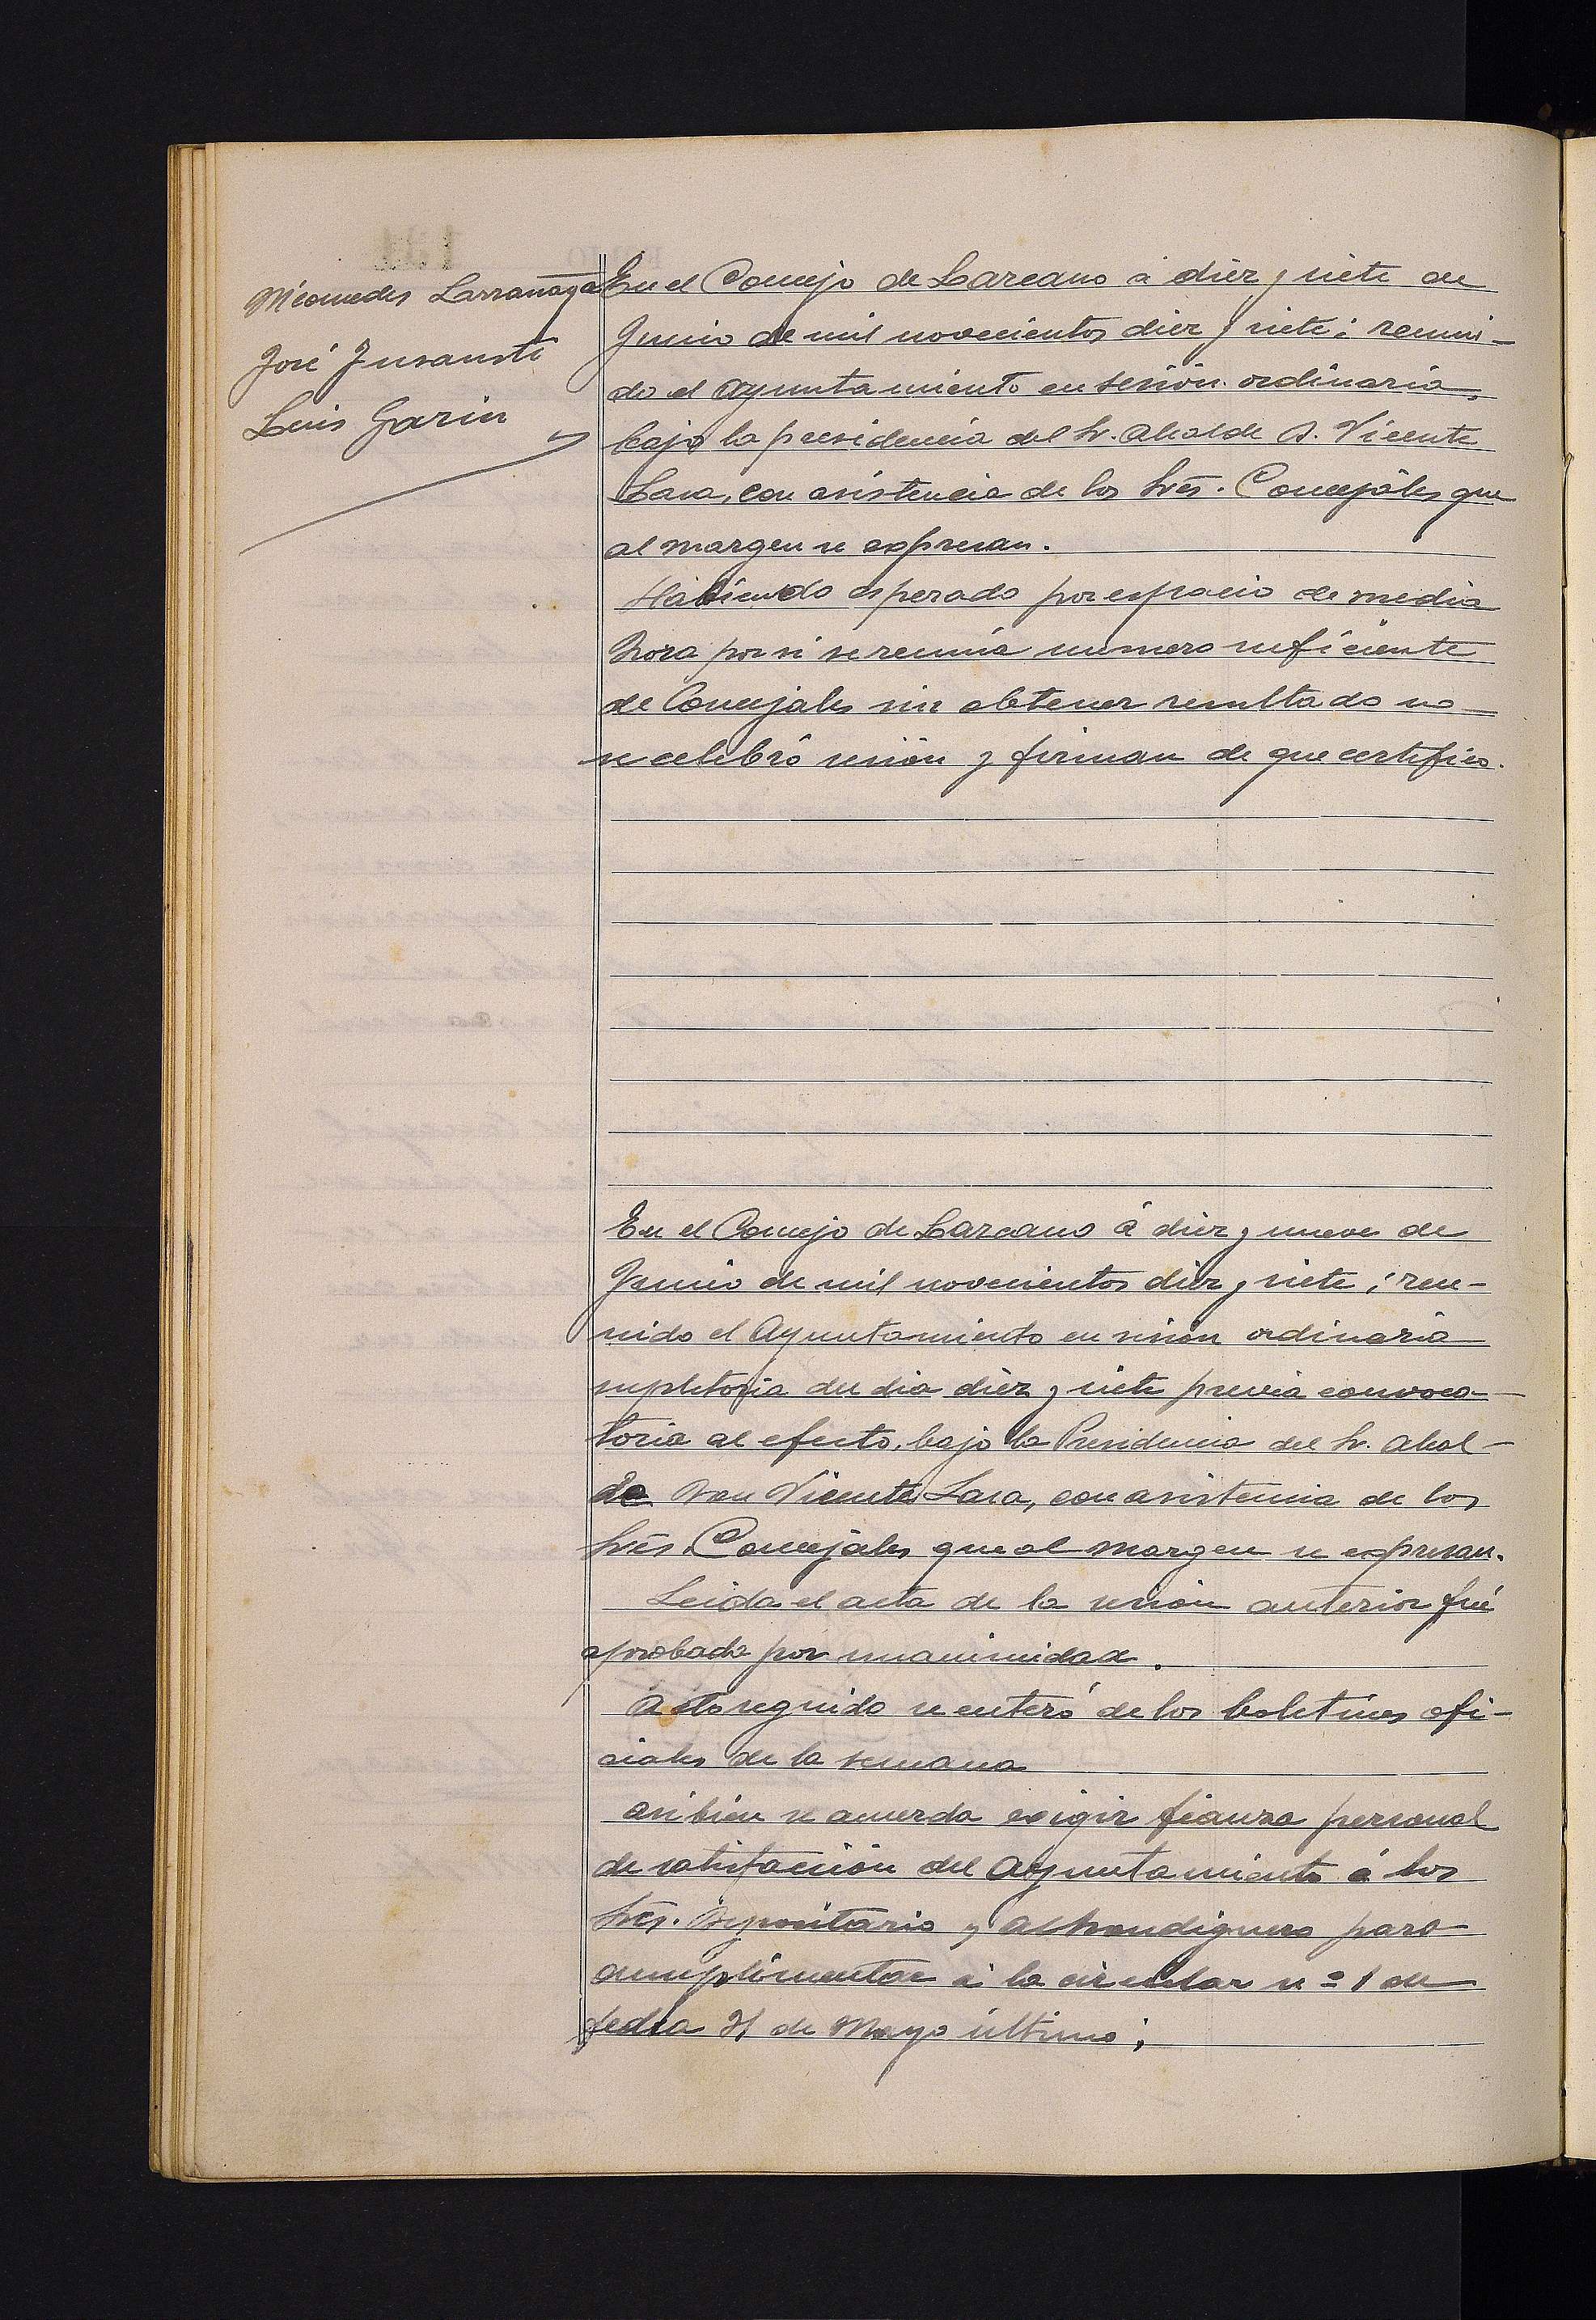 Nicomedes Larrañaga
José Insausti
Luis Garin
En el Concejo de Lazcano á diez y siete de
Junio de mil novecientos diez y siete; reuni-
do el Ayuntamiento en sesión ordinaria,
bajo la presidencia del Sr. Alcalde D. Vicente
Lasa, con asistencia de los Srēs. Concejáles que
al margen se expresan.
Habiendo esperado por espacio de media
hora por si se reunia numero suficiente
de Concejales sin obtener resultado no
se celebró sesión y firman de que certifico.
En el Concejo de Lazcano á diez y nueve de
Junio de mil novecientos diez y siete; reu-
nido el Ayuntamiento en sesión ordinaria
supletoria del dia diez y siete previa convoca-
toria al efecto, bajo la Presidencia del Sr. Alcal-
de Don Vicente Lasa, con asistencia de los
Srēs. Concejáles que al margen se expresan.
Leida el acta de la sesión anterior fué
aprobada por unanimidad.
Acto seguido se enteró de los boletines ofi-
ciales de la semana
Asi bien se acuerda exigir fianza personal
de satisfacción del Ayuntamiento á los
Srēs. Depositario y Alhondiguero para
cumplimentar á la circular nº 1 de
fecha 31 de Mayo último;